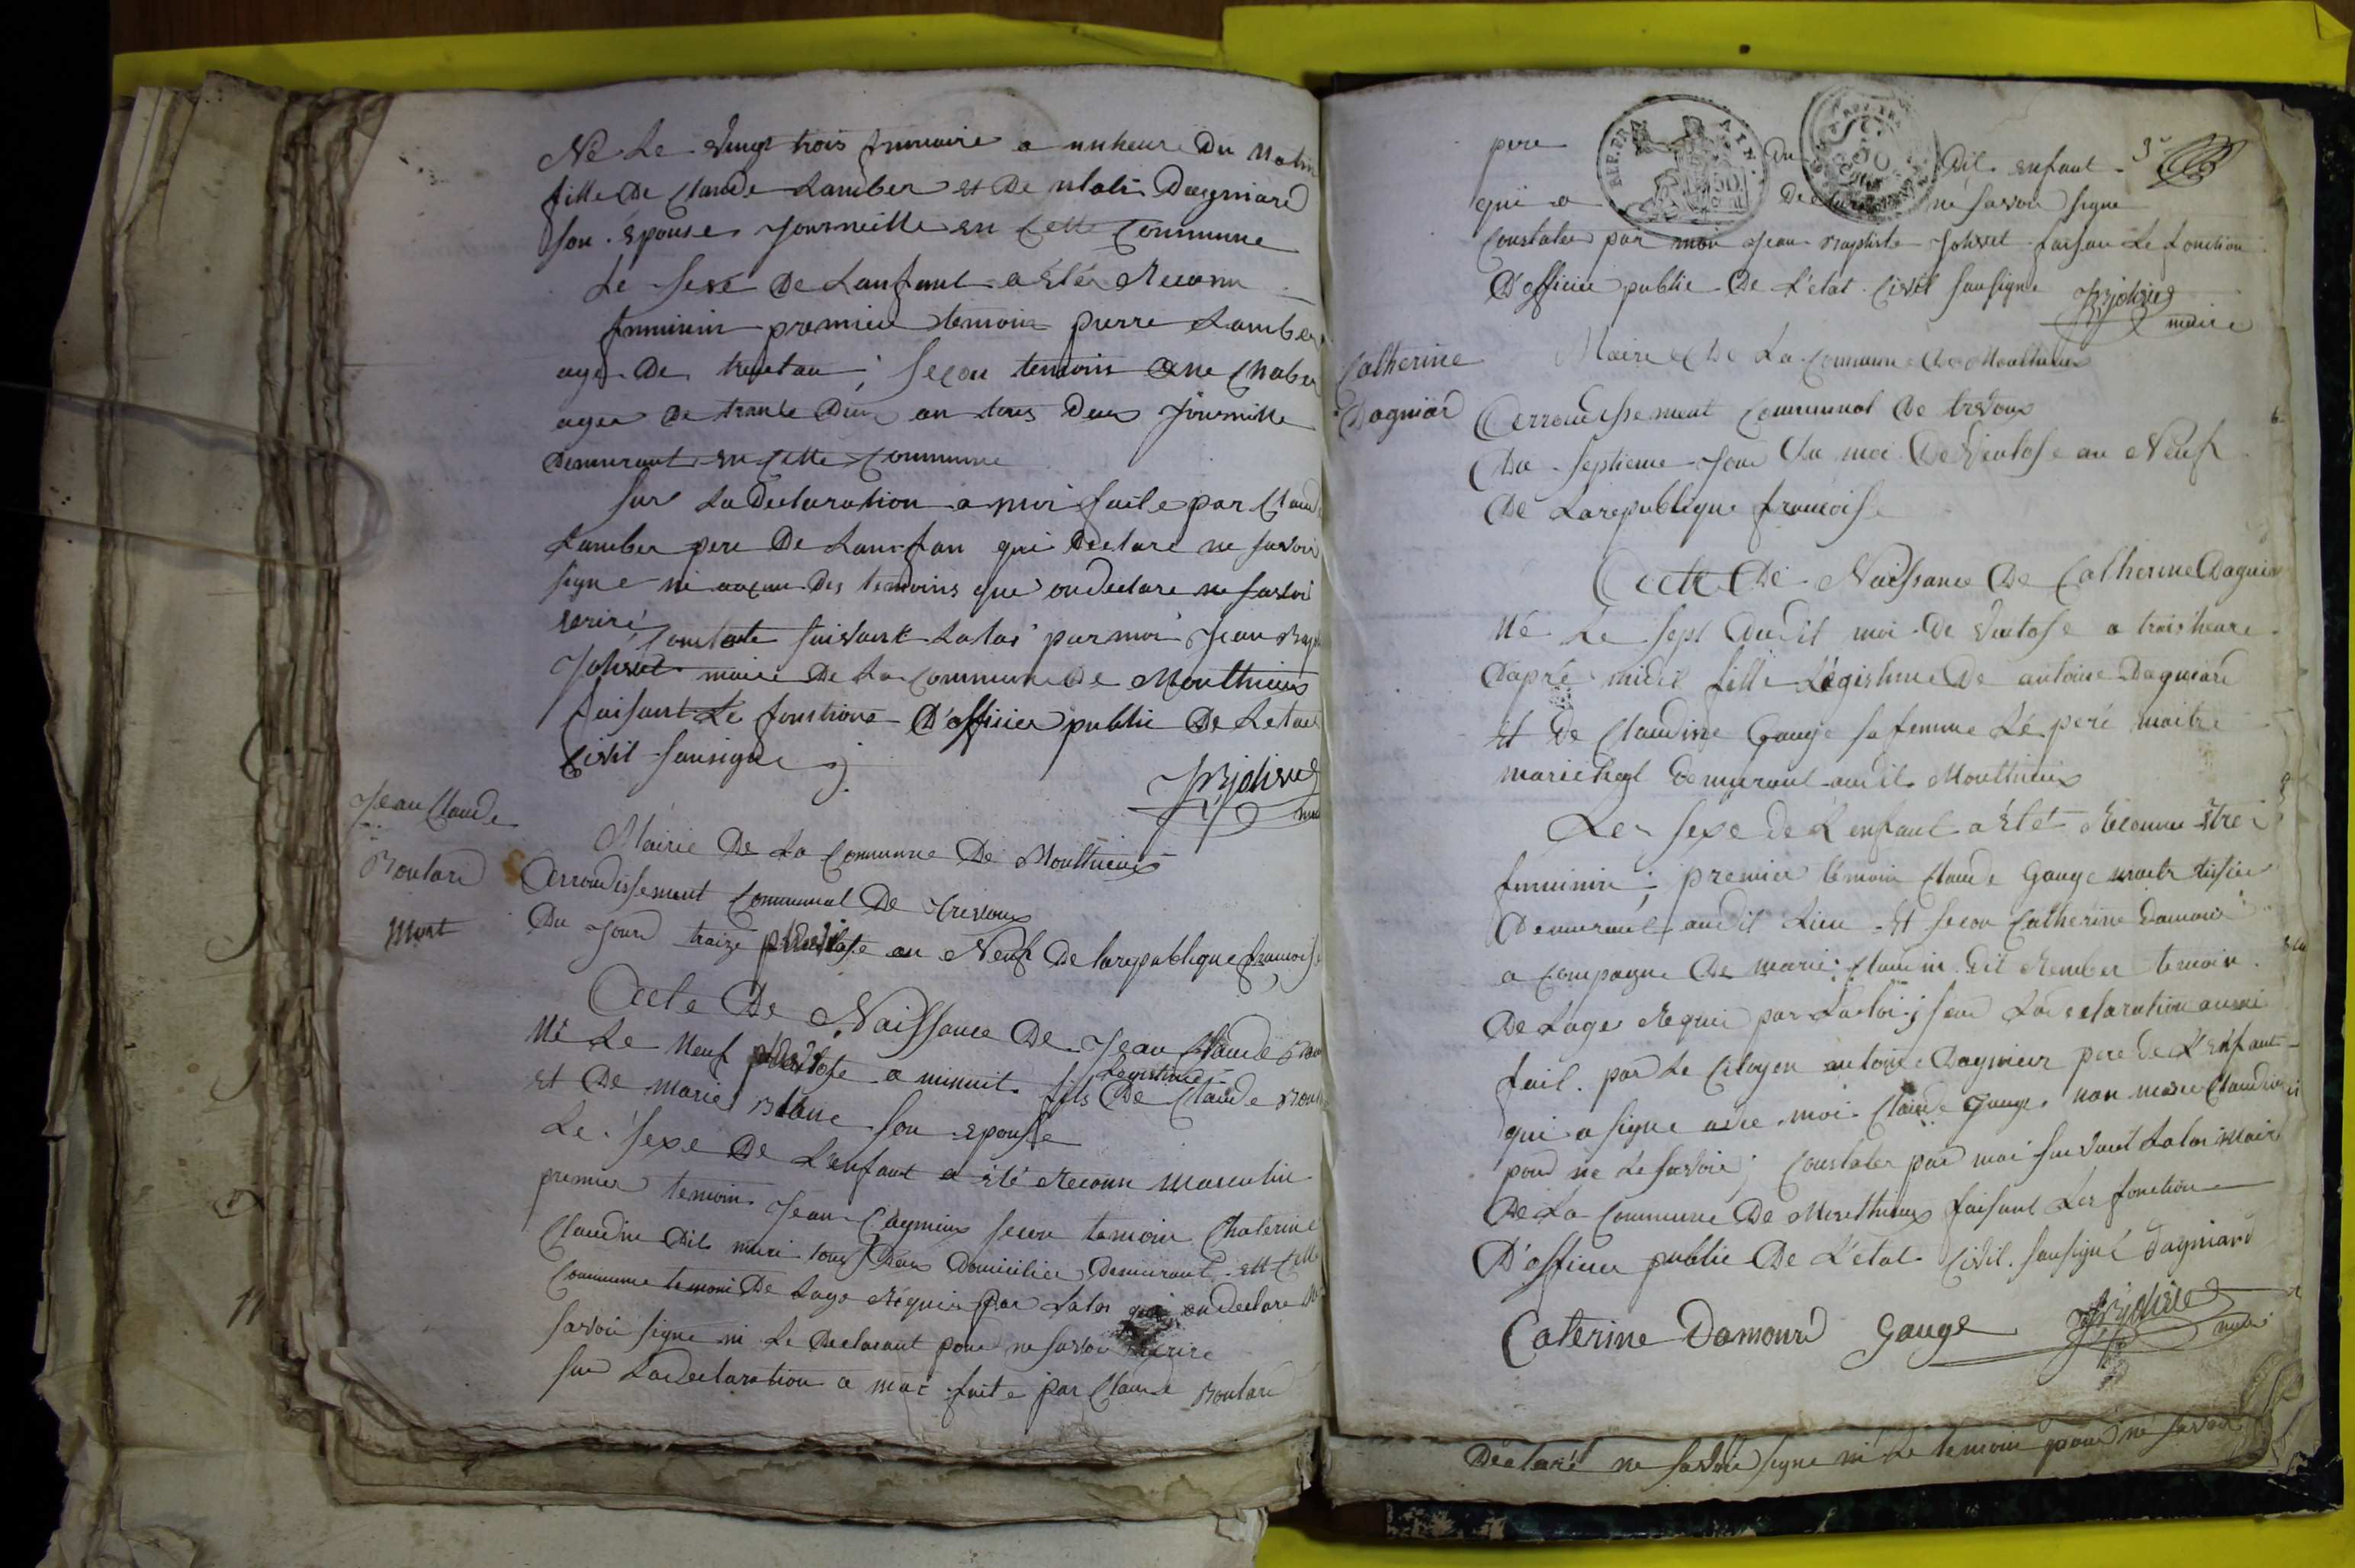 Né Le vingt trois frimaire a un heure Du Matin
fille De Claude Lamber et De Dagniard
son épouse Journeille en Cette Commune
Le sexe De Lanfant a Eté Reconu
feminin premier temoin pierre Lamber
agé De trentan ; secon temoin
agée De trante Deux an tous Deux Journille
Demurant en Cette Commune
sur La Declaration a moi faite par Claude
Lamber pere De Lanfan qui Declare ne savoir
signe ni aucun Des temoins que on declare ne savoir
ecrire
Constate suivant La loi par moi Jean
Johvet maire De La Commune De Monthieux
faisant Le fonctions D'officier public De Letat
Civil sousigne
JB johvet
Jean Claude
Boulard
Mort
Mairie De La Commune De Monthieux
Arrondissement Communal De Trevoux
Du Jour traize pluviose an Neuf De la republique francoise
Acte De Naissance De Jean Claude
Né Le Neuf pluviose a minuit fils Legistime De Claude
Et De Marie Blanc son epouse
Le sexe De L'enfant a été Reconu masculin
premier temoin Jean secon temoin Chaterine
Claudin Dit tous Deux Domicilier Demurant Cette
Commune temoin De Lage Requis par La loi on Declare
savoir signe ni Le Declarant pour ne savoir ecrire
sur La Declaration a moi faite par Claude Boulard
pere Du Dit enfant
REP. FRA. AIN. 50 cent
qui a Declare ne savoir signe
Constater par moi Jean Baptiste Johvet faisan Le fonction
D'officier public De L'état Civil sousigne JB johvet
maire
Catherine
Dagniard
Mairie De La Commune De Monthieux
Arrondissement Communal De trevoux
Du septieme Jour Du moi De Ventose an Neuf
De La republique francoise
Acte De Naissance De Catherine Dagniard
Né Le sept Dudit moi De Ventose a trois heure
D'apré midit fille Légistime De antoine Dagniard
Et De Claudine Gauge sa femme Le pere maitre
marichal Demurant audit Monthieux
Le sexe de L'enfant a Eté Reconnu Etre
feminin ; premier temoin Claude Gauge maitr tisier
Demurant audit Lieu Et secon Catherine Damour
a Compagne De marie Claudin dit Rember temoin
De Lage Requi par La loi ; sur La declaration a moi
fait par Le Citoyen antoine Dagnier pere De L'enfant
qui a signe avec moi Claude Gauge non marie Claudin
pour ne Le savoir ; Constater par moi suivant La loi maire
De La Commune De Monthieux faisant Les fonction
D'officier public De L'état Civil sousigné Dagniard
Caterine Damourd Gauge JB johvet
maire
Déclaré ne savoir signe ni Le temoin pour ne savoir